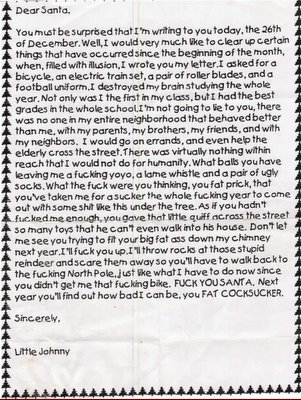 Dear Santa,
You must be surprised that I'm writing to you today, the 26th
of December. Well, I would very much like to clear up certain
things that have occurred since the beginning of the month,
when, filled with illusion, I wrote you my letter. I asked for a
bicycle, an electric train set, a pair of roller blades, and a
football uniform. I destroyed my brain studying the whole
year. Not only was I the first in my class, but I had the best
grades in the whole school. I'm not going to lie to you, there
was no one in my entire neighborhood that behaved better
than me, with my parents, my brothers, my friends, and with
my neighbors. I would go on errands, and even help the
elderly cross the street. There was virtually nothing within
reach that I would not do for humanity. What balls you have
leaving me a fucking yoyo, a lame whistle and a pair of ugly
socks. What the fuck were you thinking, you fat prick, that
you've taken me for a sucker the whole fucking year to come
out with some shit like this under the tree. As if you hadn't
fucked me enough, you gave that little quiff across the street
so many toys that he can't even walk into his house. Don't let
me see you trying to fit your big fat ass down my chimney
next year. I'll fuck you up. I'll throw rocks at those stupid
reindeer and scare them away so you'll have to walk back to
the fucking North Pole, just like what I have to do now since
you didn't get me that fucking bike. FUCK YOU SANTA. Next
year you'll find out how bad I can be, you FAT COCKSUCKER.
Sincerely,
Little Johnny